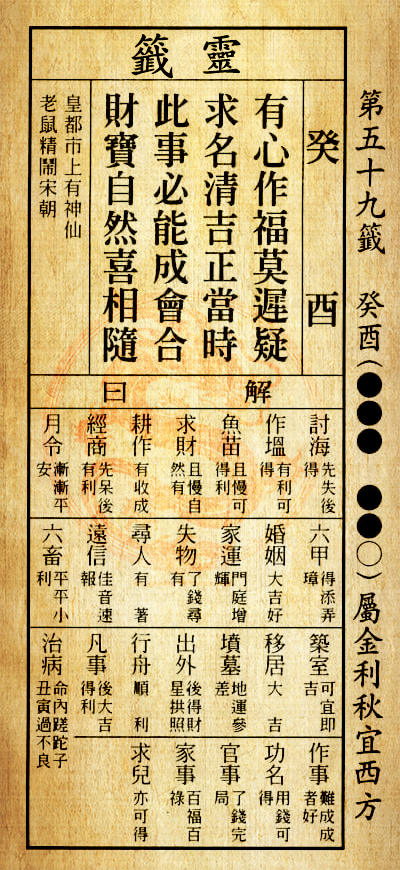 第五十九籤 癸酉(●●● ●●○)屬金利秋宜西方
靈籤
癸酉
有心作福莫遲疑
求名清吉正當時
此事必能成會合
財寶自然喜相隨
皇都市上有神仙
老鼠精鬧宋朝
解曰
討海 先失後得
作塭 有利可得
魚苗 且慢可得利
求財 且慢自然有
耕作 有收成
經商 先呆後有利
月令 漸漸平安
六甲 得添弄璋
婚姻 大吉好
家運 門庭增輝
失物 了錢尋有
尋人 有著
遠信 佳音速報
六畜 平平小利
築室 可宜即吉
移居 大吉
墳墓 地運參差
出外 後得財星拱照
行舟 順利
凡事 後大吉得利
治病 命內蹉跎子丑寅過不良
作事 難成成者好
功名 用錢可得
官事 了錢完局
家事 百福百祿
求兒 亦可得